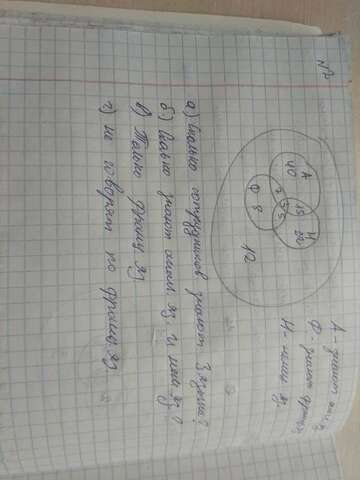 №2
А - знают англ яз
Ф - знают француз
Н - немец яз
А
40
15
Н
5
Ф
8
12
а) Сколько сотрудников знают 3 языка?
б) Сколько знают англ яз. и нем яз?
в) Только франц яз
г) не говорят по франц. яз